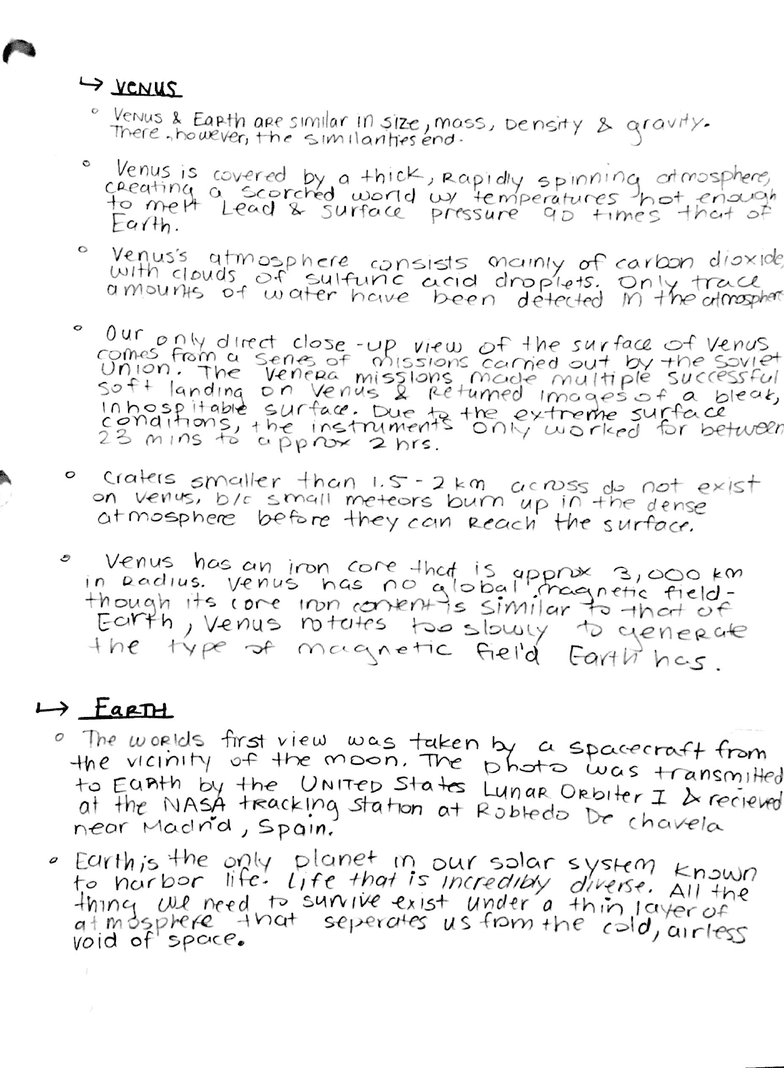 ↳ VENUS
° VENUS & EARTH are similar in size, mass, Density & gravity.
There, however, the similarities end.
° Venus is covered by a thick, Rapidly spinning atmosphere,
creating a scorched world w/ temperatures hot enough
to melt Lead & surface pressure 90 times that of
Earth.
° Venus's atmosphere consists mainly of carbon dioxide,
with clouds of sulfuric acid droplets. Only trace
amounts of water have been detected in the atmosphere
° Our only direct close-up view of the surface of Venus
comes from a series of missions carried out by the Soviet
Union. The Venera missions made multiple successful
soft landing on Venus & Returned images of a bleak,
inhospitable surface. Due to the extreme surface
conditions, the instruments only worked for between
23 mins to approx 2 hrs.
° Craters smaller than 1.5 - 2 km across do not exist
on Venus, b/c small meteors burn up in the dense
atmosphere before they can Reach the surface.
° Venus has an iron core that is approx 3,000 km
in Radius. Venus has no global magnetic field-
though its core iron content is similar to that of
Earth, Venus rotates too slowly to generate
the type of magnetic field Earth has.
↳ EARTH
° The worlds first view was taken by a spacecraft from
the vicinity of the moon. The photo was transmitted
to Earth by the UNITED States Lunar Orbiter I & recieved
at the NASA tracking station at Robledo De chavela
near Madrid, Spain.
° Earth is the only planet in our solar system known
to harbor life. Life that is incredibly diverse. All the
thing we need to survive exist under a thin layer of
atmosphere that seperates us from the cold, airless
void of space.